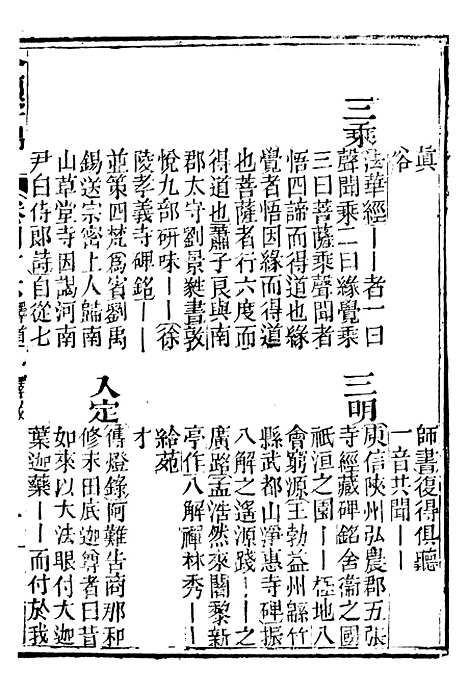 眞
俗
三乘
法華經——者一曰
聲聞乘二曰緣覺乘
三曰菩薩乘聲聞者
悟四諦而得道也緣
覺者悟因緣而得道
也菩薩者行六度而
得道也蕭子良與南
郡太守劉景蕤書敦
悅九部研味——徐
陵孝義寺碑銘——
並策四梵爲賓劉禹
錫送宗密上人歸南
山草堂寺因謁河南
尹白侍郎詩自從七
師書復得俱聽
一音共聞——
三明
庾信陝州弘農郡五張
寺經藏碑銘舍衞之國
祇洹之園——極地八
會窮源王勃益州緜竹
縣武都山淨惠寺碑振
八解之遙源踐——之
廣路孟浩然來闍黎新
亭作八解禪林秀——
給苑
才
入定
傳燈錄阿難告商那和
修末田底迦尊者曰昔
如來以大法眼付大迦
葉迦葉——而付於我